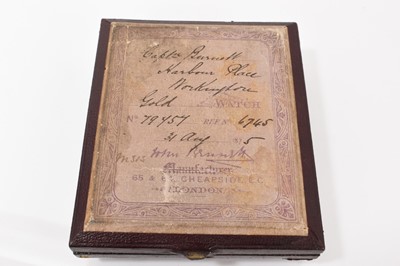 Captn Burnett
Harbour Place
Workington
Gold WATCH
No 79457 REF No 6745
21 Aug 5
John Bennett
Manufacturer
65 & 64, CHEAPSIDE, E.C.
LONDON